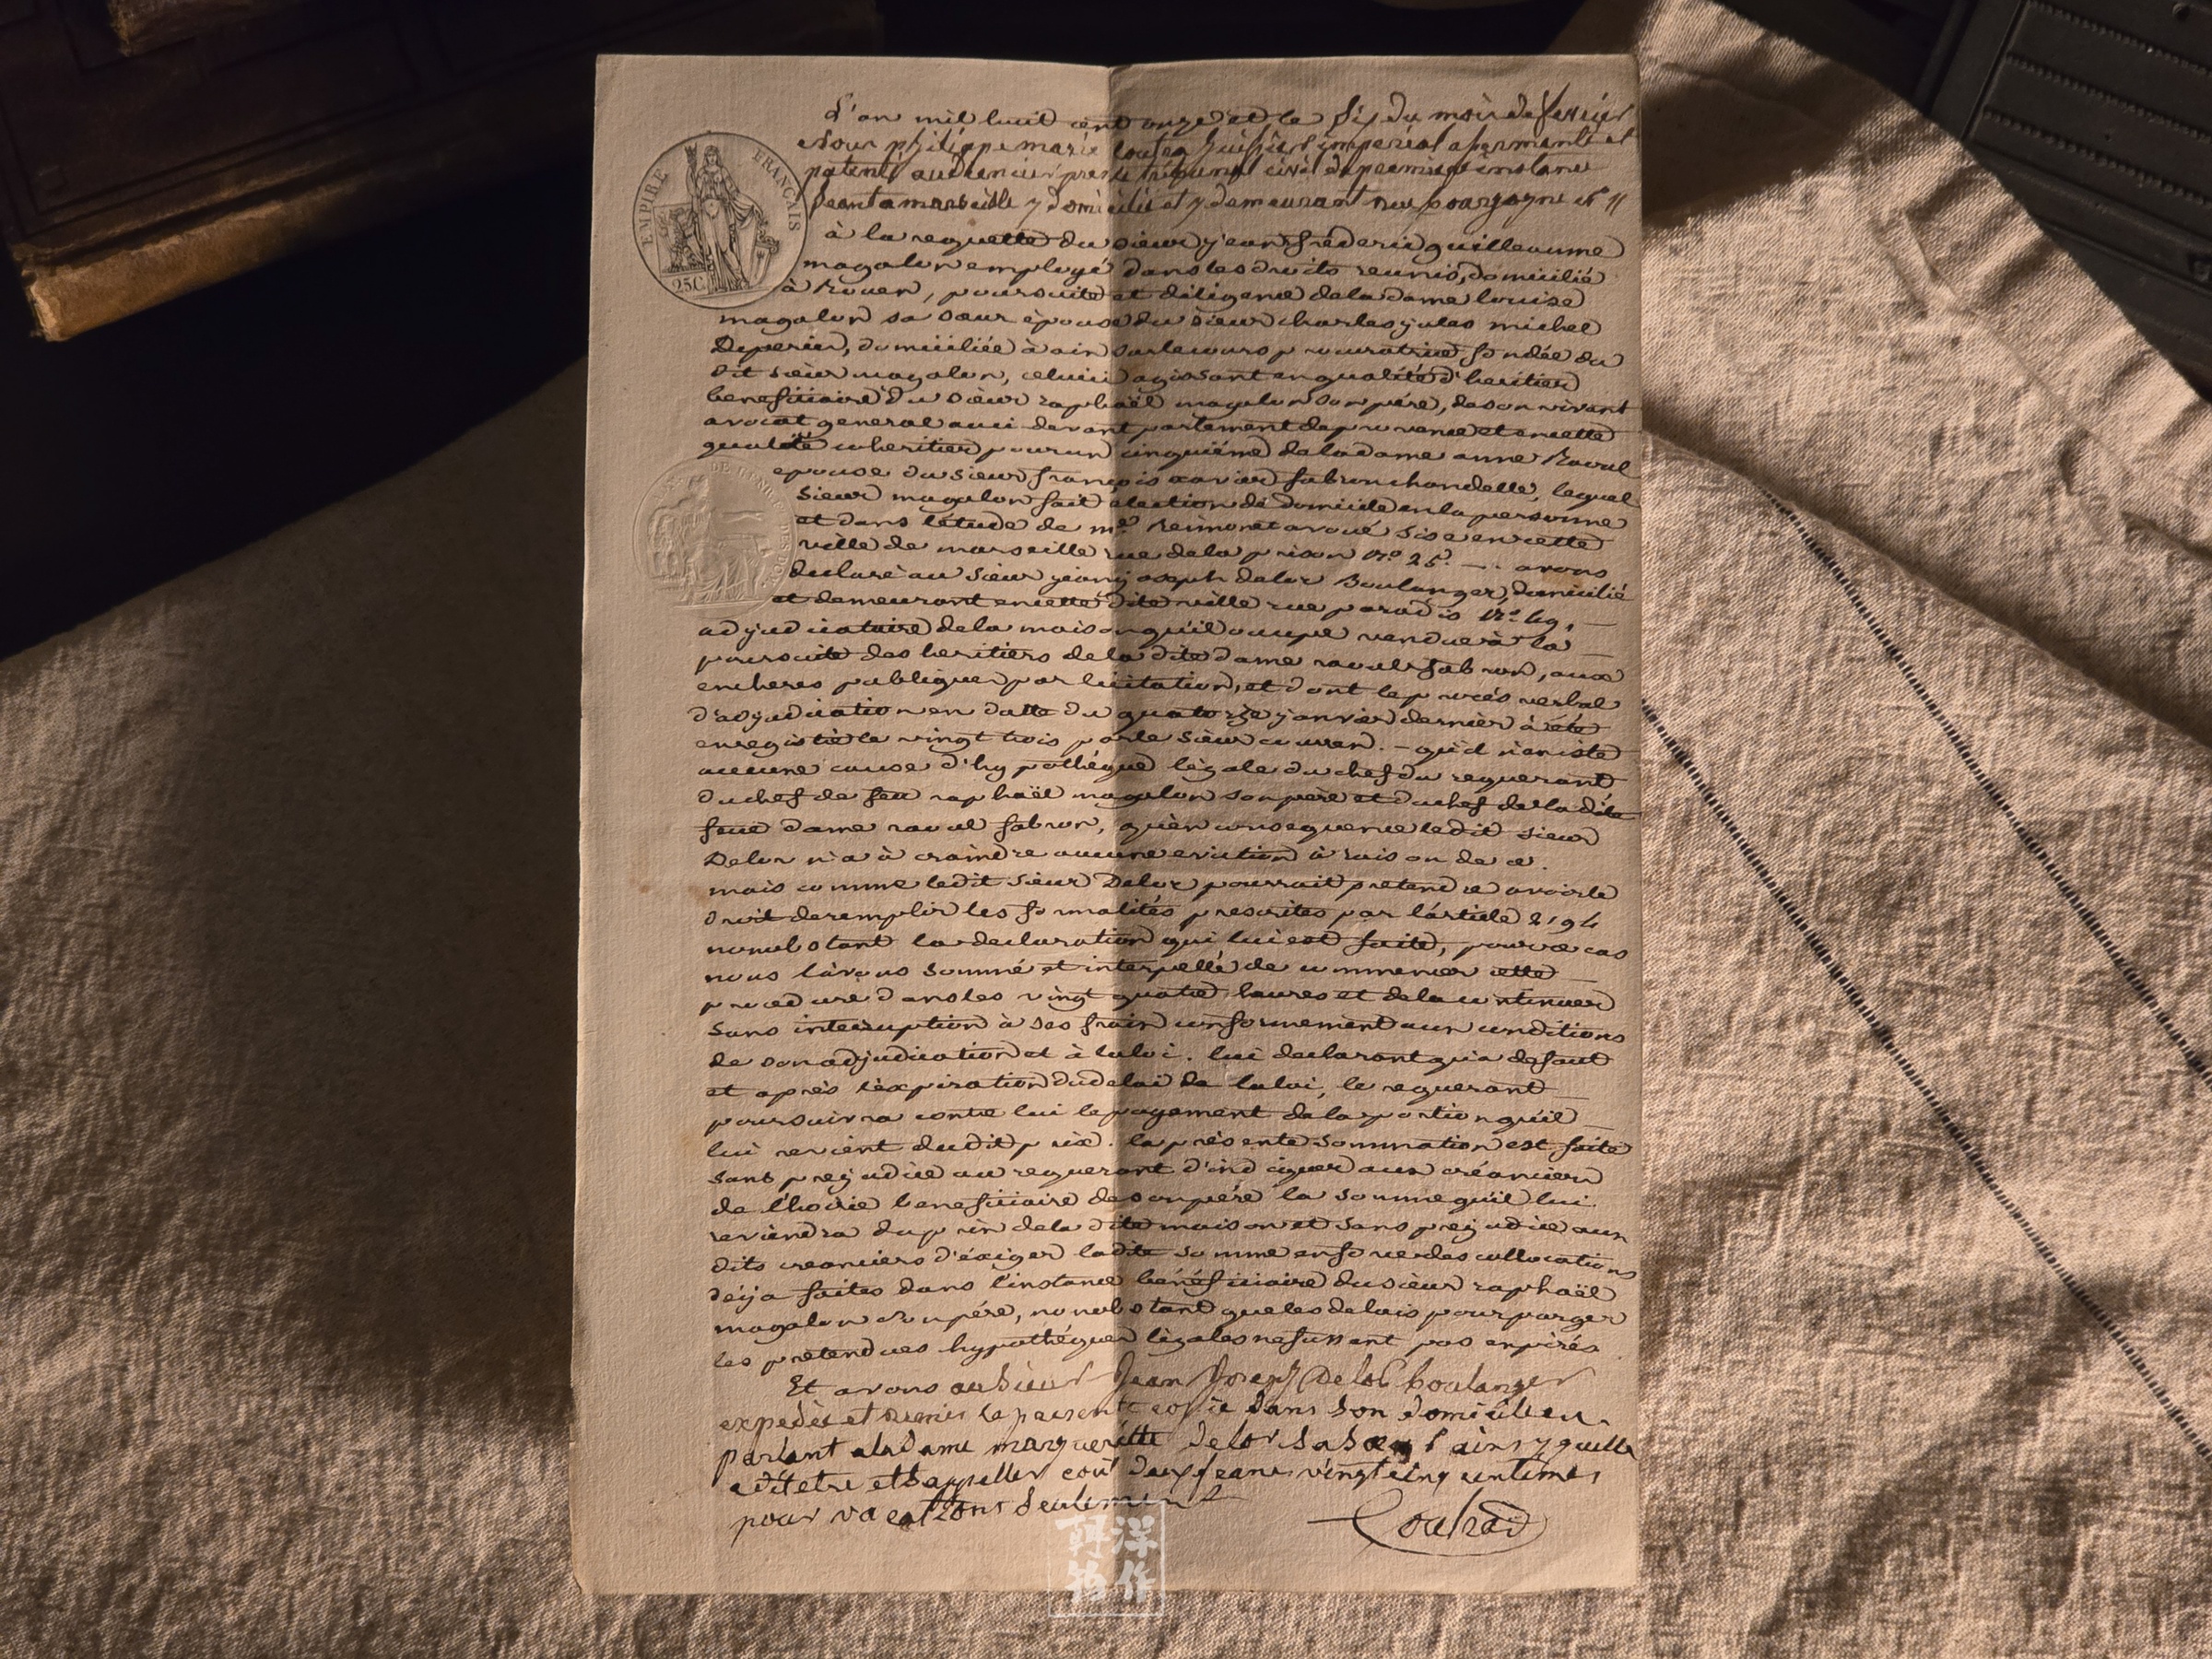 L'an mil huit cent onze et le six du mois de fevrier
Nous philippe marie huissier imperial assermenté et
patenté audiencier pres le tribunal civil de premiere instance
seant a marseille y domicilié et y demeurant rue bourgogne nº 11
à la requette du sieur jean frederic guilleaume
magalon employé dans les droits reunis, domicilié
à Rouen, poursuite et diligence de la dame louise
magalon sa sœur épouse du sieur charles jules michel
Deperier, domiciliée à aix sur le cours procuratrice fondée du
dit sieur magalon, celui ci agissant en qualité d'heritier
beneficiaire du sieur raphaël magalon son père, de son vivant
avocat general au ci-devant parlement de provence et en cette
qualité coheritier pour un cinquième de la dame anne Raoul
epouse du sieur françois xavier fabron chandelle, lequel
sieur magalon fait election de domicile en la personne
et dans l'étude de me. Reimonet avoué sise en cette
ville de marseille rue de la prison nº 25. — avons
declaré au sieur jean joseph delor Boulanger, domicilié
et demeurant en cette dite ville rue paradis nº 49, —
adjudicataire de la maison qu'il occupe vendue à la —
poursuite des heritiers de la dite dame raoul fabron, aux
encheres publiques par licitation, et dont le procés verbal
d'adjudication en datte du quatorze janvier dernier à été
enregistré le vingt trois par le sieur — qu'il n'existe
aucune cause d'hypothéque légale du chef du requerant
du chef de feu raphaël magalon son père et du chef de la dite
feue dame raoul fabron, qu'en consequence ledit sieur
Delor n'a à craindre aucune eviction à raison de ce.
mais comme ledit sieur Delor pourrait pretendre avoir le
droit de remplir les formalités prescrites par l'article 2194
nonobstant la declaration qui lui est faite, pour ce cas
nous l'avons sommé et interpellé de commencer cette
procedure dans les vingt quatre heures et de la continuer
sans interruption à ses frais conformement aux conditions
de son adjudication et à la loi. lui declarant qu'a defaut
et après l'expiration du delai de la loi, le requerant —
poursuivra contre lui le payement de la portion qu'il —
lui revient dudit prix. la présente sommation est faite
sans prejudice au requerant d'indiquer aux créanciers
de l'hoirie beneficiaire de son père la somme qu'il lui
reviendra du prix de la dite maison et sans prejudice aux
dits creanciers d'éxiger ladite somme en force des collocations
déja faites dans l'instance bénéficiaire du sieur raphaël
magalon son père, nonobstant que les delais pour purger
les pretendues hypothéques légales ne fussent pas expirés
Et avons au sieur Jean Joseph Delor boulanger
expedié et remis la presente copie dans son domicile en
parlant a la dame margueritte delor sa ainsy quelle
a dit etre et s'appeller cout deux francs vingt cinq centimes
pour vacations seulement
EMPIRE FRANÇAIS
25 C.